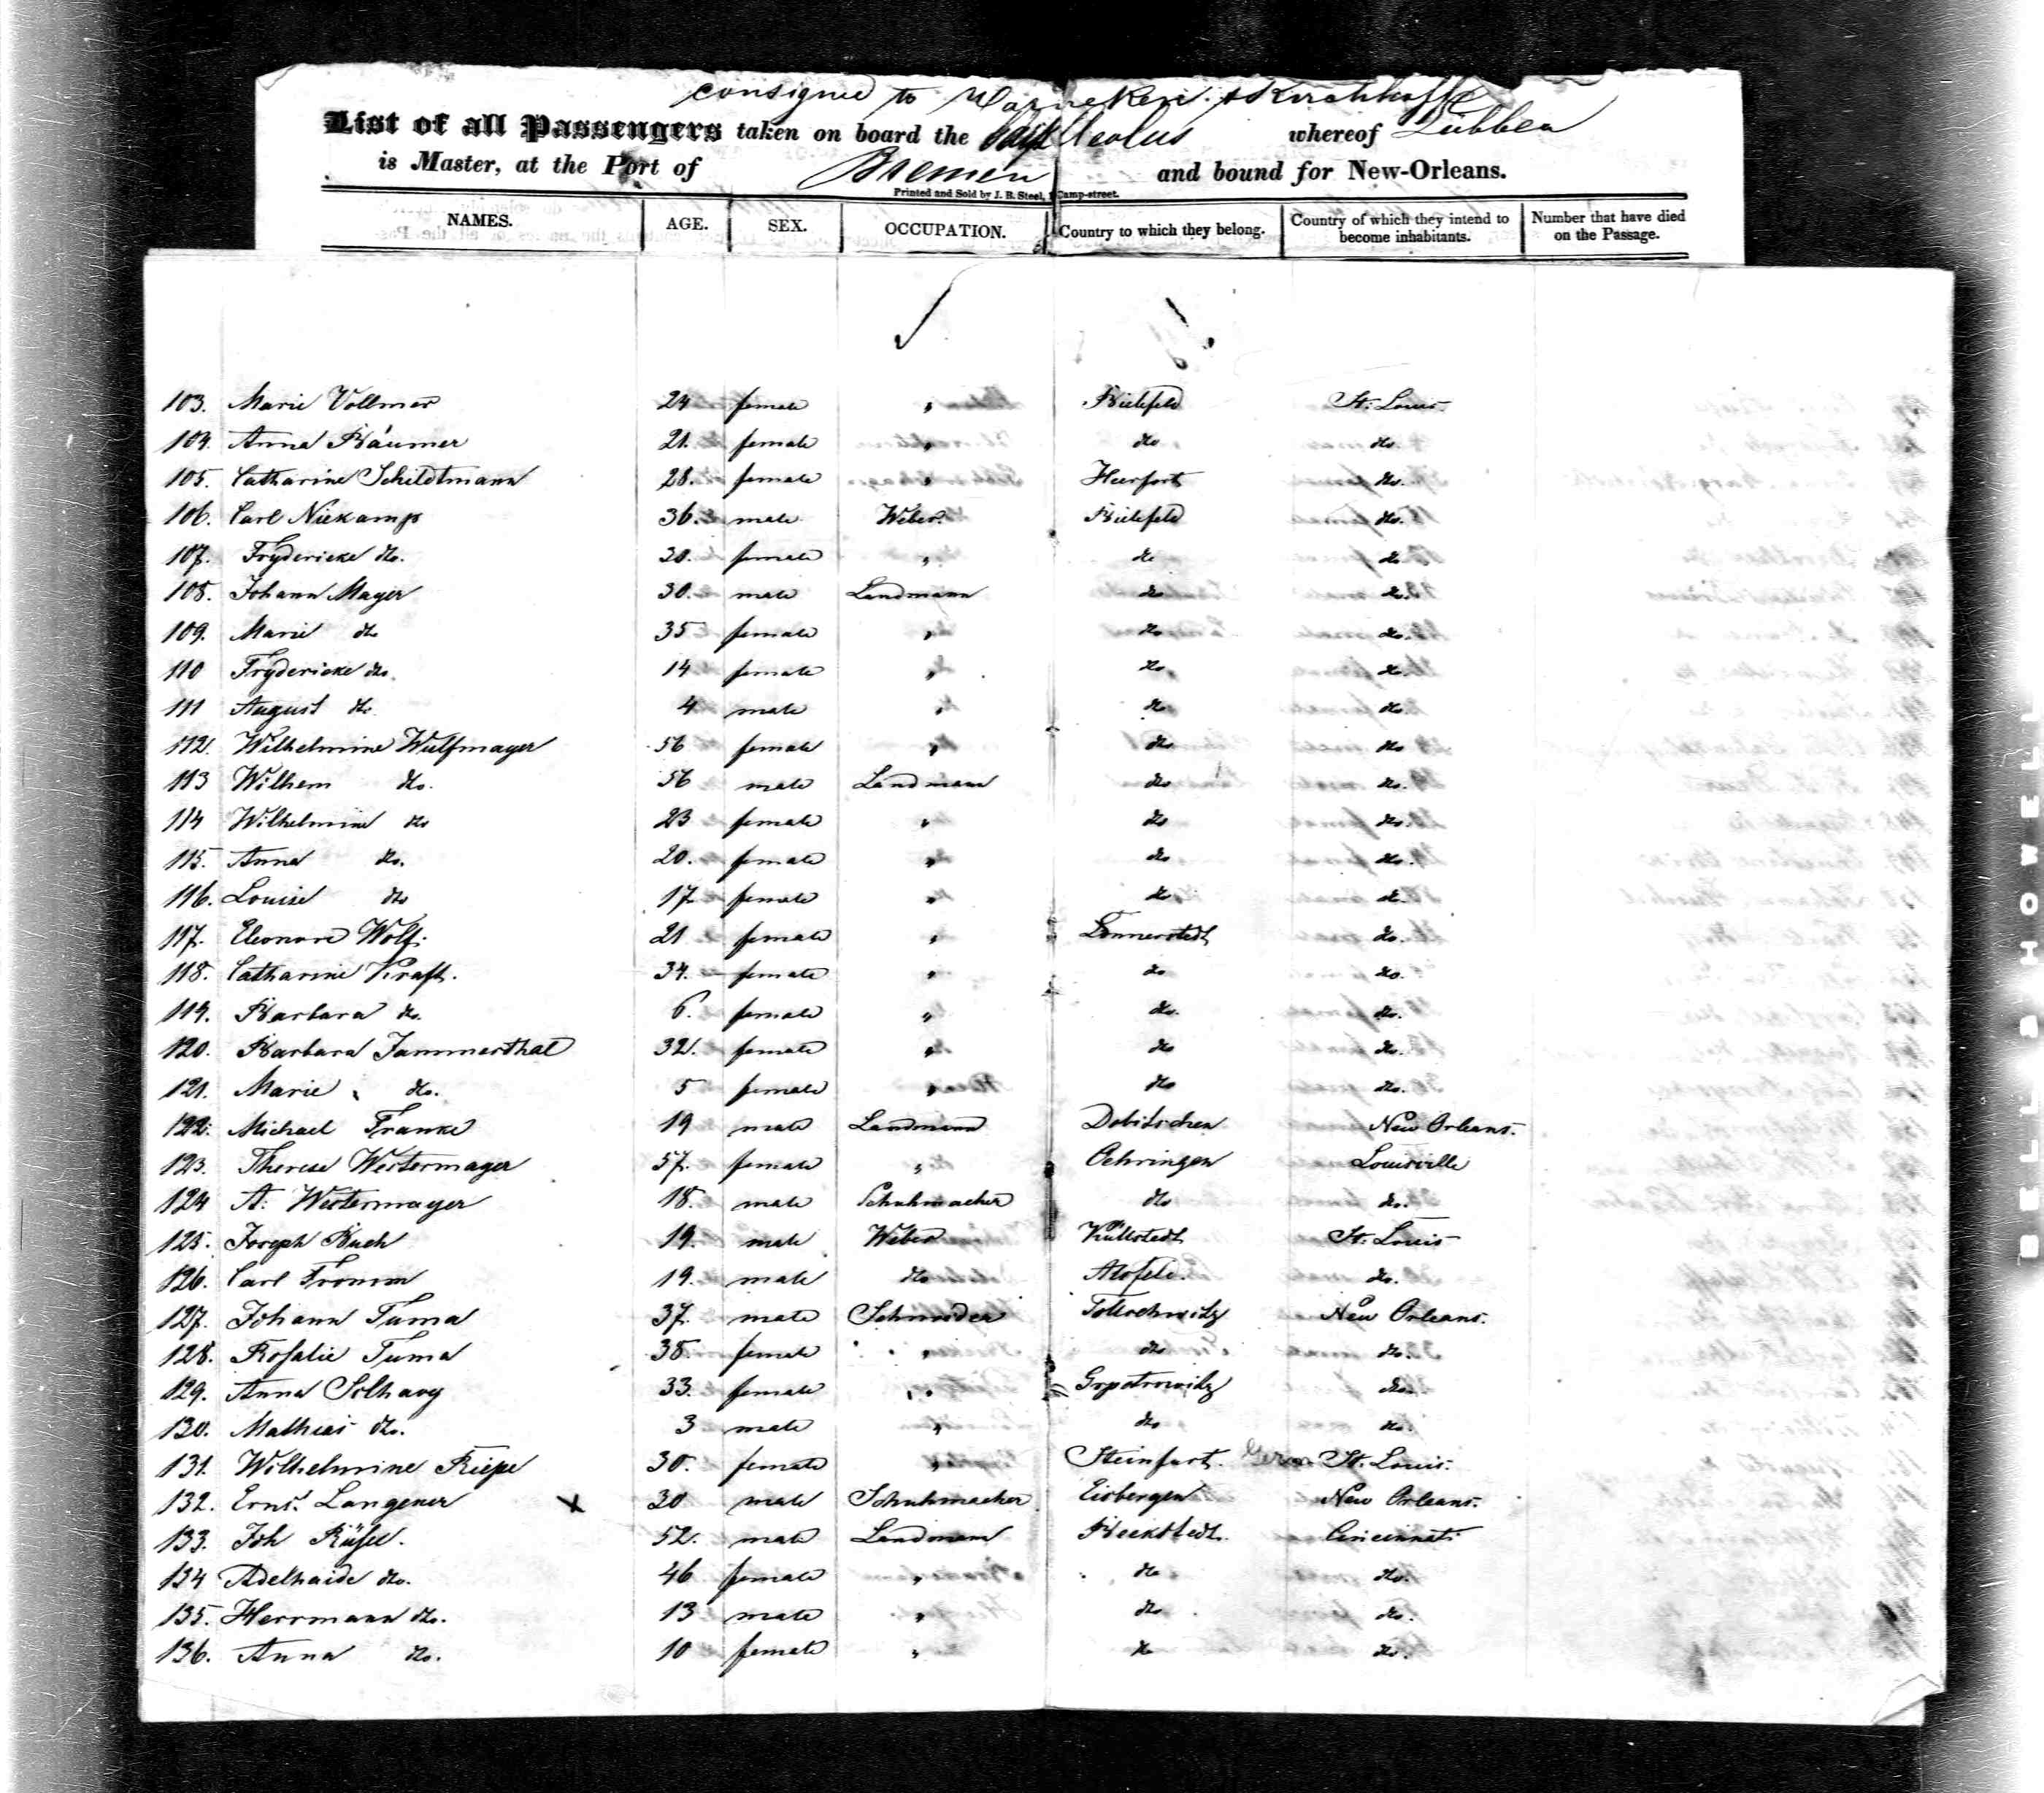 consigned to Warneken & Kirchhoff
List of all Passengers taken on board the Ship Aeolus whereof Lübben
is Master, at the Port of Bremen and bound for New-Orleans.
Printed and Sold by J. B. Steel, Camp-street.
NAMES. AGE. SEX. OCCUPATION. Country to which they belong. Country of which they intend to become inhabitants. Number that have died on the Passage.
103. Marie Vollmer 24 female " Bielefeld St. Louis.
104. Anna Bäumer 21. female " do do.
105. Catharine Schildtmann 28. female " Heerfort do.
106. Carl Niekamp 36. male Weber. Bielefeld do.
107. Frydericke do. 20. female " do do
108. Johann Mayer 30. male Landmann do do.
109. Marie do 35 female " do do.
110 Frydericke do. 14 female " do do.
111 August do 4 male " do do.
112. Wilhelmine Wulfmayer 56 female " do do
113 Wilhem do. 56 male Landmann do do.
114 Wilhelmine do 23 female " do do.
115. Anna do. 20. female " do do.
116. Louise do 17. female " do do.
117. Eleonore Wolf. 21 female " Sonnerstedt do.
118. Catharine Kraft. 34. female " do do.
119. Barbara do. 6. female " do. do.
120. Barbara Jammerthal 32. female " do do.
121. Marie do. 5 female " do do.
122. Michael Franke 19 male Landmann Dobitschen New Orleans.
123. Therese Westermayer 57. female " Oehringen Louisville
124 A. Westermayer 18. male Schuhmacher do do.
125. Joseph Buch 19. male Weber Küllstedt St. Louis
126. Carl Fromm 19. male do Alsfeld. do.
127. Johann Tuma 37. male Schneider New Orleans.
128. Rosalie Tuma 38. female " do do.
129. Anna Solhavy 33. female " do.
130. Mathias do. 3 male " do do.
131. Wilhelmine Riepe 30. female " Steinfurt. St. Louis.
132. Ernst Langener X 30 male Schuhmacher Eisbergen New Orleans.
133. Joh Rüsel. 52. male Landmann Beckstedt. Cincinnati
134 Adelhaide do. 46 female " do do.
135. Herrmann do. 13 male " do do.
136. Anna do. 10 female " do do.
BELL & HOWELL